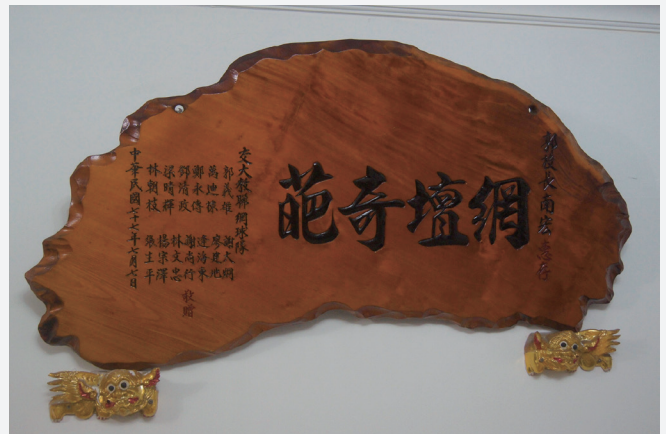 郭校長南宏惠存
網壇奇葩
交大教聯網球隊
郭義雄 謝太明
萬迪棣 廖建
鄭永傳 連海東
鍾清政 謝尚行
梁晴輝 林文忠
林朝枝 楊宗澤
張圭平
敬贈
中華民國七十七年七月七日